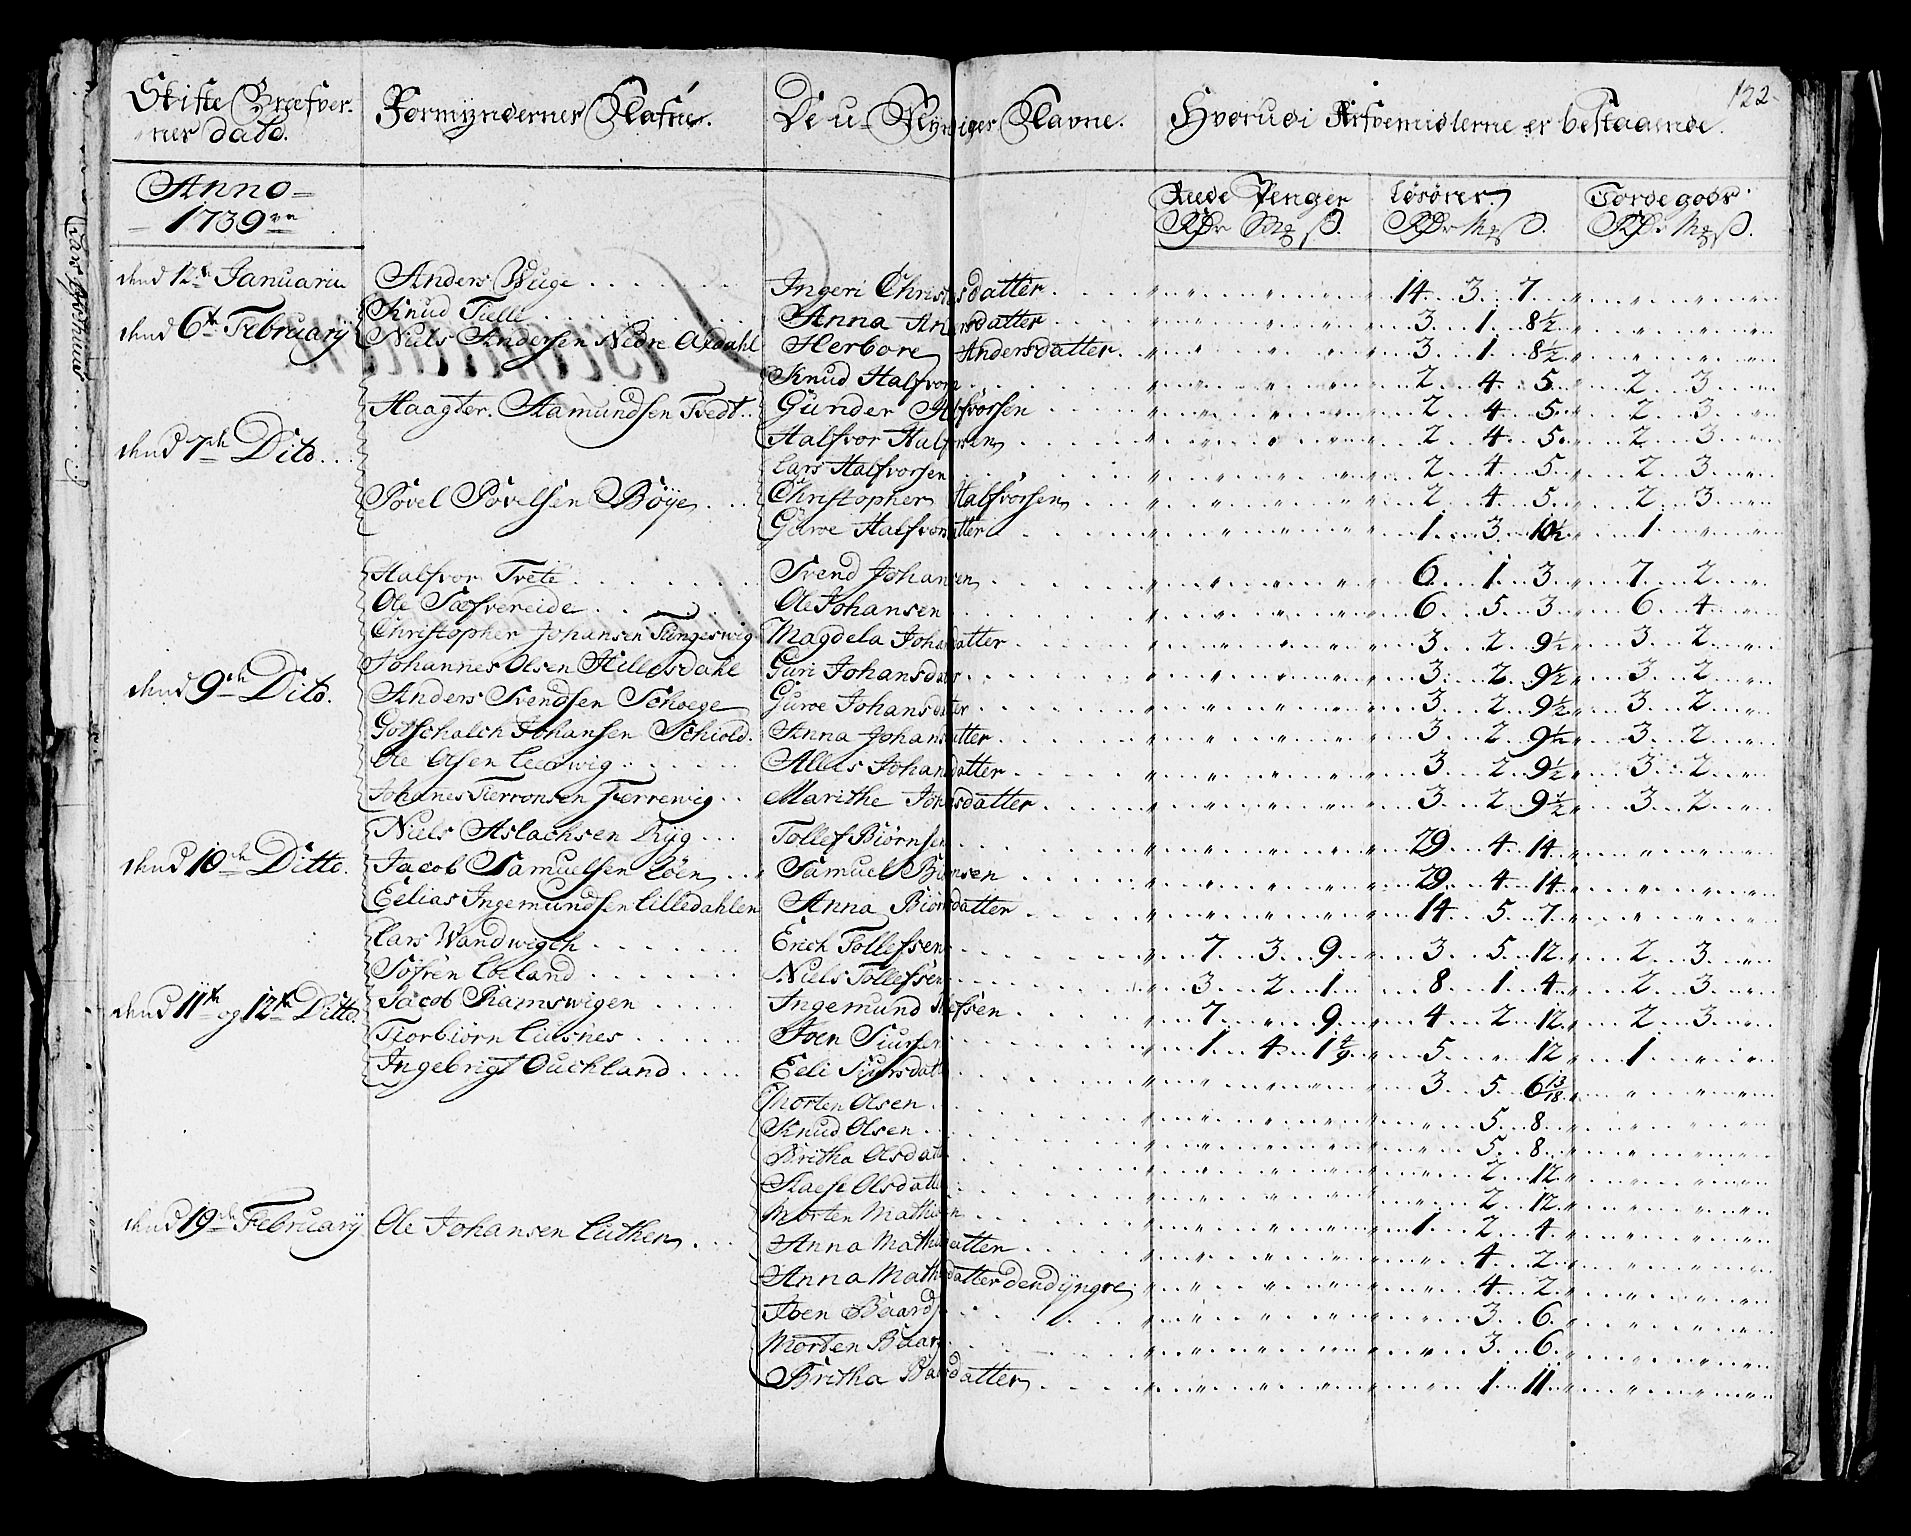 122
Skifte Bræfver- Formyndernes Nafne. De u-Myndiges Navne. Hvorudi Arfvemidlerne er bestaaende.
nes dato.
Anno
1739
Rede Penger Løsører. Jordegods
Rdr Mk ß. Rdr Mk ß. Rdr Mk ß.
dend 12t Januarii Anders Wiige Ingeri Christensdatter 14 3 7
dend 6t February Knud Tielle Anna Andersdatter 3 1 8½
Niels Andersen Nedre Axdahl Herbore Andersdatter 3 1 8½
Knud Halfvors 2 4 5 2 3
Haagter Aamundsen Tvedt Gunder Halfvorsen 2 4 5 2 3
dend 7th Dito Halfvor Halfvorsen 2 4 5 2 3
Lars Halfvorsen 2 4 5 2 3
Povel Povelsen Bøye Christopher Halfvorsen 2 4 5 2 3
Guroe Halfvorsdatter 1 3 10½ 1
Halfvor Tvete Svend Johansen 6 1 3 7 2
Ole Sæfvereide Ole Johansen 6 5 3 6 4
Christopher Johansen Tungeswig Magdela Johansdatter 3 2 9½ 3 2
Johannes Olsen Hillesdahl Guri Johansdatter 3 2 9½ 3 2
dend 9th Dito. Anders Svendsen Schoege Guroe Johansdatter 3 2 9½ 3 2
Gotschalch Johansen Schiold. Anna Johansdatter 3 2 9½ 3 2
Ole Olsen Leewig Alleis Johansdatter 3 2 9½ 3 2
Johanes Tierronsen Ferrewig Marithe Johansdatter 3 2 9½ 3 2
Niels Aslachsen Ryg Tollef Biørnsen 29 4 14
dend 10th Ditto. Jacob Samuelsen Løen Samuel Biørnsen 29 4 14
Eelias Ingemundsen Lilledahlen Anna Biørnsdatter 14 5 7
Lars Wandwigch Erich Tollefsen 7 3 9 3 5 12 2 3
Søfren Løland Niels Tollefsen 3 2 1 8 1 4 2 3
dend 11th og 12th Ditto. Jacob Ramswigen Ingemund Tollefsen 7 9 4 2 12 2 3
Tiorbiørn Liusnes Joen Siursen 1 4 1 4/9 5 12 1
Ingebrigt Ouchland Eeli Siursdatter 3 5 6 13/18
Morten Olsen 5 8
Knud Olsen 5 8
Britha Olsdatter 2 12
Olsdatter 2 12
Morten Mathisen 1 2 4
dend 19th February Ole Johansen Luthen Anna Mathisdatter 4 2
Anna Mathisdatter den dyngre 4 2
Joen Baardsen 3 6
Morten Baards 3 6
Britha Baarsdatter 1 11